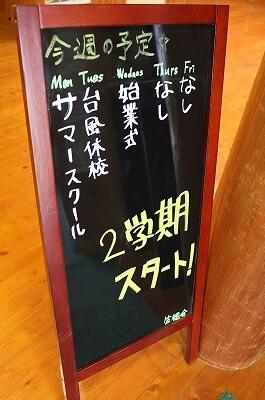 今週の予定☆
Mon Tues Wednes Thurs Fri
サマースクール
台風休校
始業式
なし
なし
2学期
スタート!